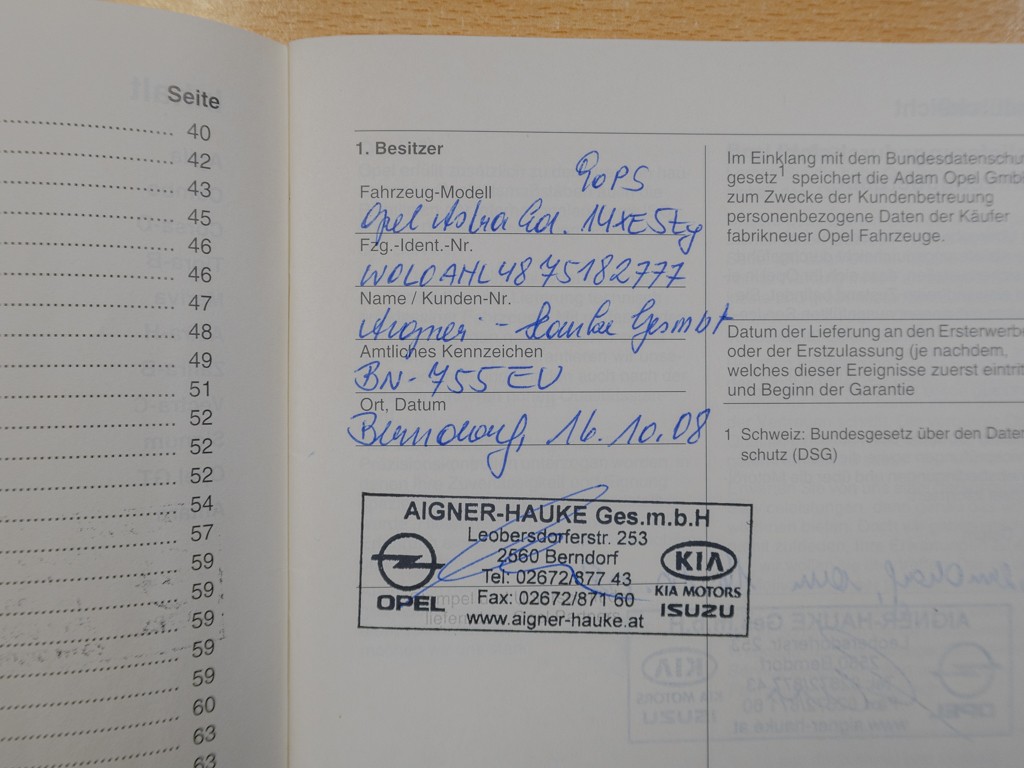 Seite
40
42
43
45
46
46
47
48
49
51
52
52
52
54
57
59
59
59
59
59
60
63
63
1. Besitzer
90PS
Fahrzeug-Modell
Opel Astra Ed. 14XE 5tg
Fzg.-Ident.-Nr.
WOLOAHL4875182777
Name / Kunden-Nr.
Aigner - Hauke Gesmbh
Amtliches Kennzeichen
BN-755EU
Ort, Datum
Berndorf, 16.10.08
Im Einklang mit dem Bundesdatenschu
gesetz1 speichert die Adam Opel Gmb
zum Zwecke der Kundenbetreuung
personenbezogene Daten der Käufer
fabrikneuer Opel Fahrzeuge.
Datum der Lieferung an den Ersterwerbe
oder der Erstzulassung (je nachdem,
welches dieser Ereignisse zuerst eintrit
und Beginn der Garantie
1 Schweiz: Bundesgesetz über den Daten
schutz (DSG)
AIGNER-HAUKE Ges.m.b.H
Leobersdorferstr. 253
2560 Berndorf
Tel: 02672/877 43
Fax: 02672/871 60
www.aigner-hauke.at
OPEL
KIA
KIA MOTORS
ISUZU